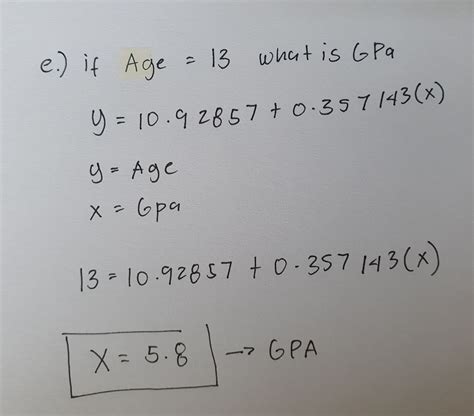 e.) if Age = 13 what is GPa
y = 10.92857 + 0.357143(x)
y = Age
x = Gpa
13 = 10.92857 + 0.357143(x)
X = 5.8 → GPA